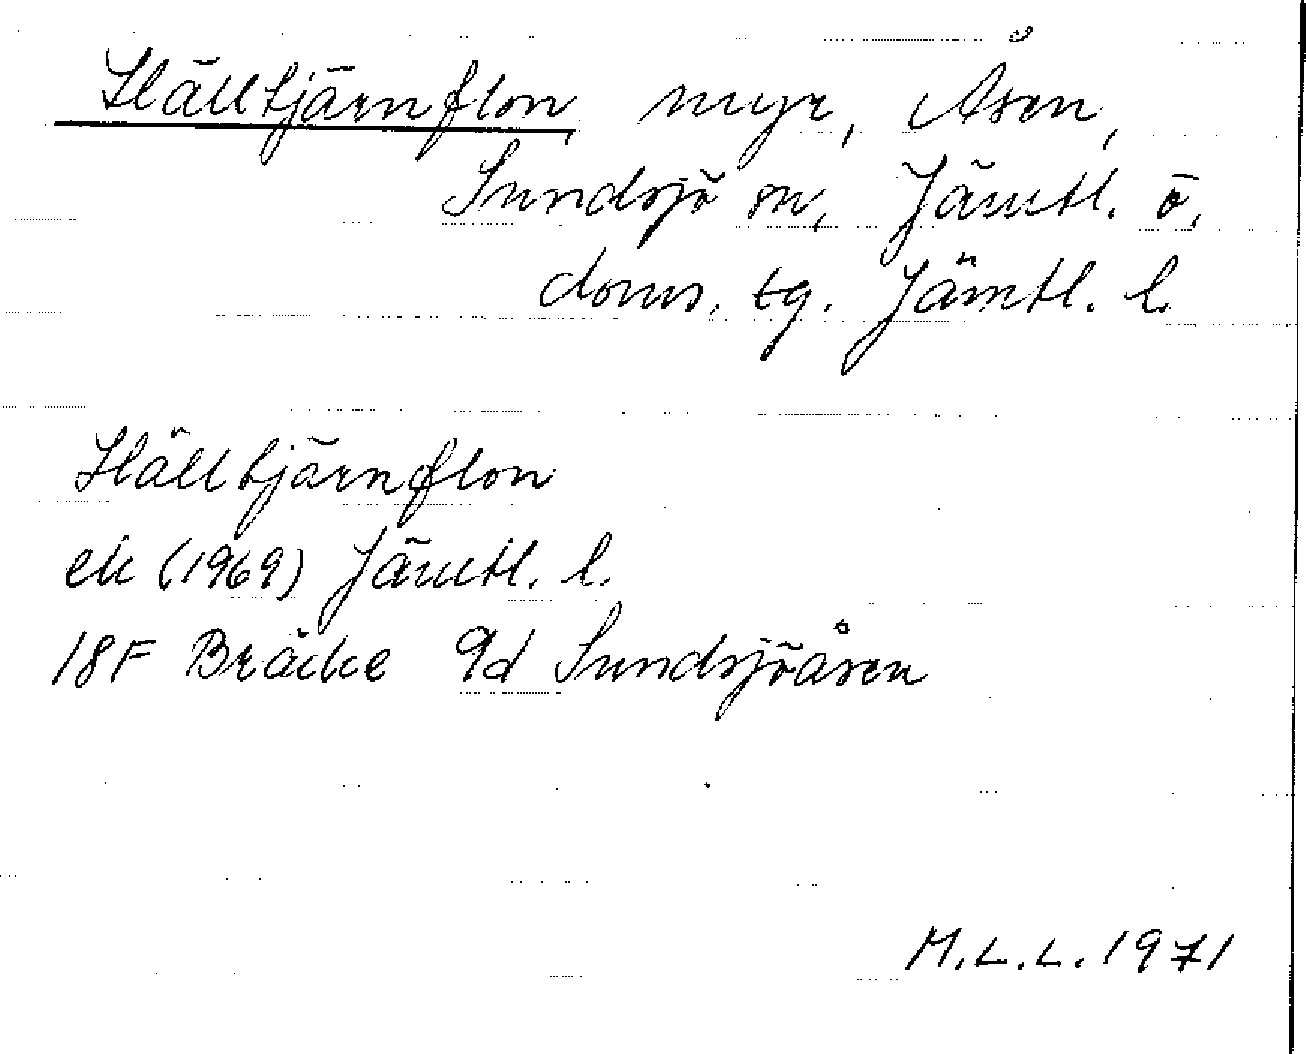 Hälltjärnflon, myr, Åsen,
Sundsjö sn, Jämtl. ö,
doms. tg. Jämtl. l.
Hälltjärnflon
ek (1969) Jämtl. l.
18F Bräcke 9d Sundsjöåsen
M.L.L. 1971